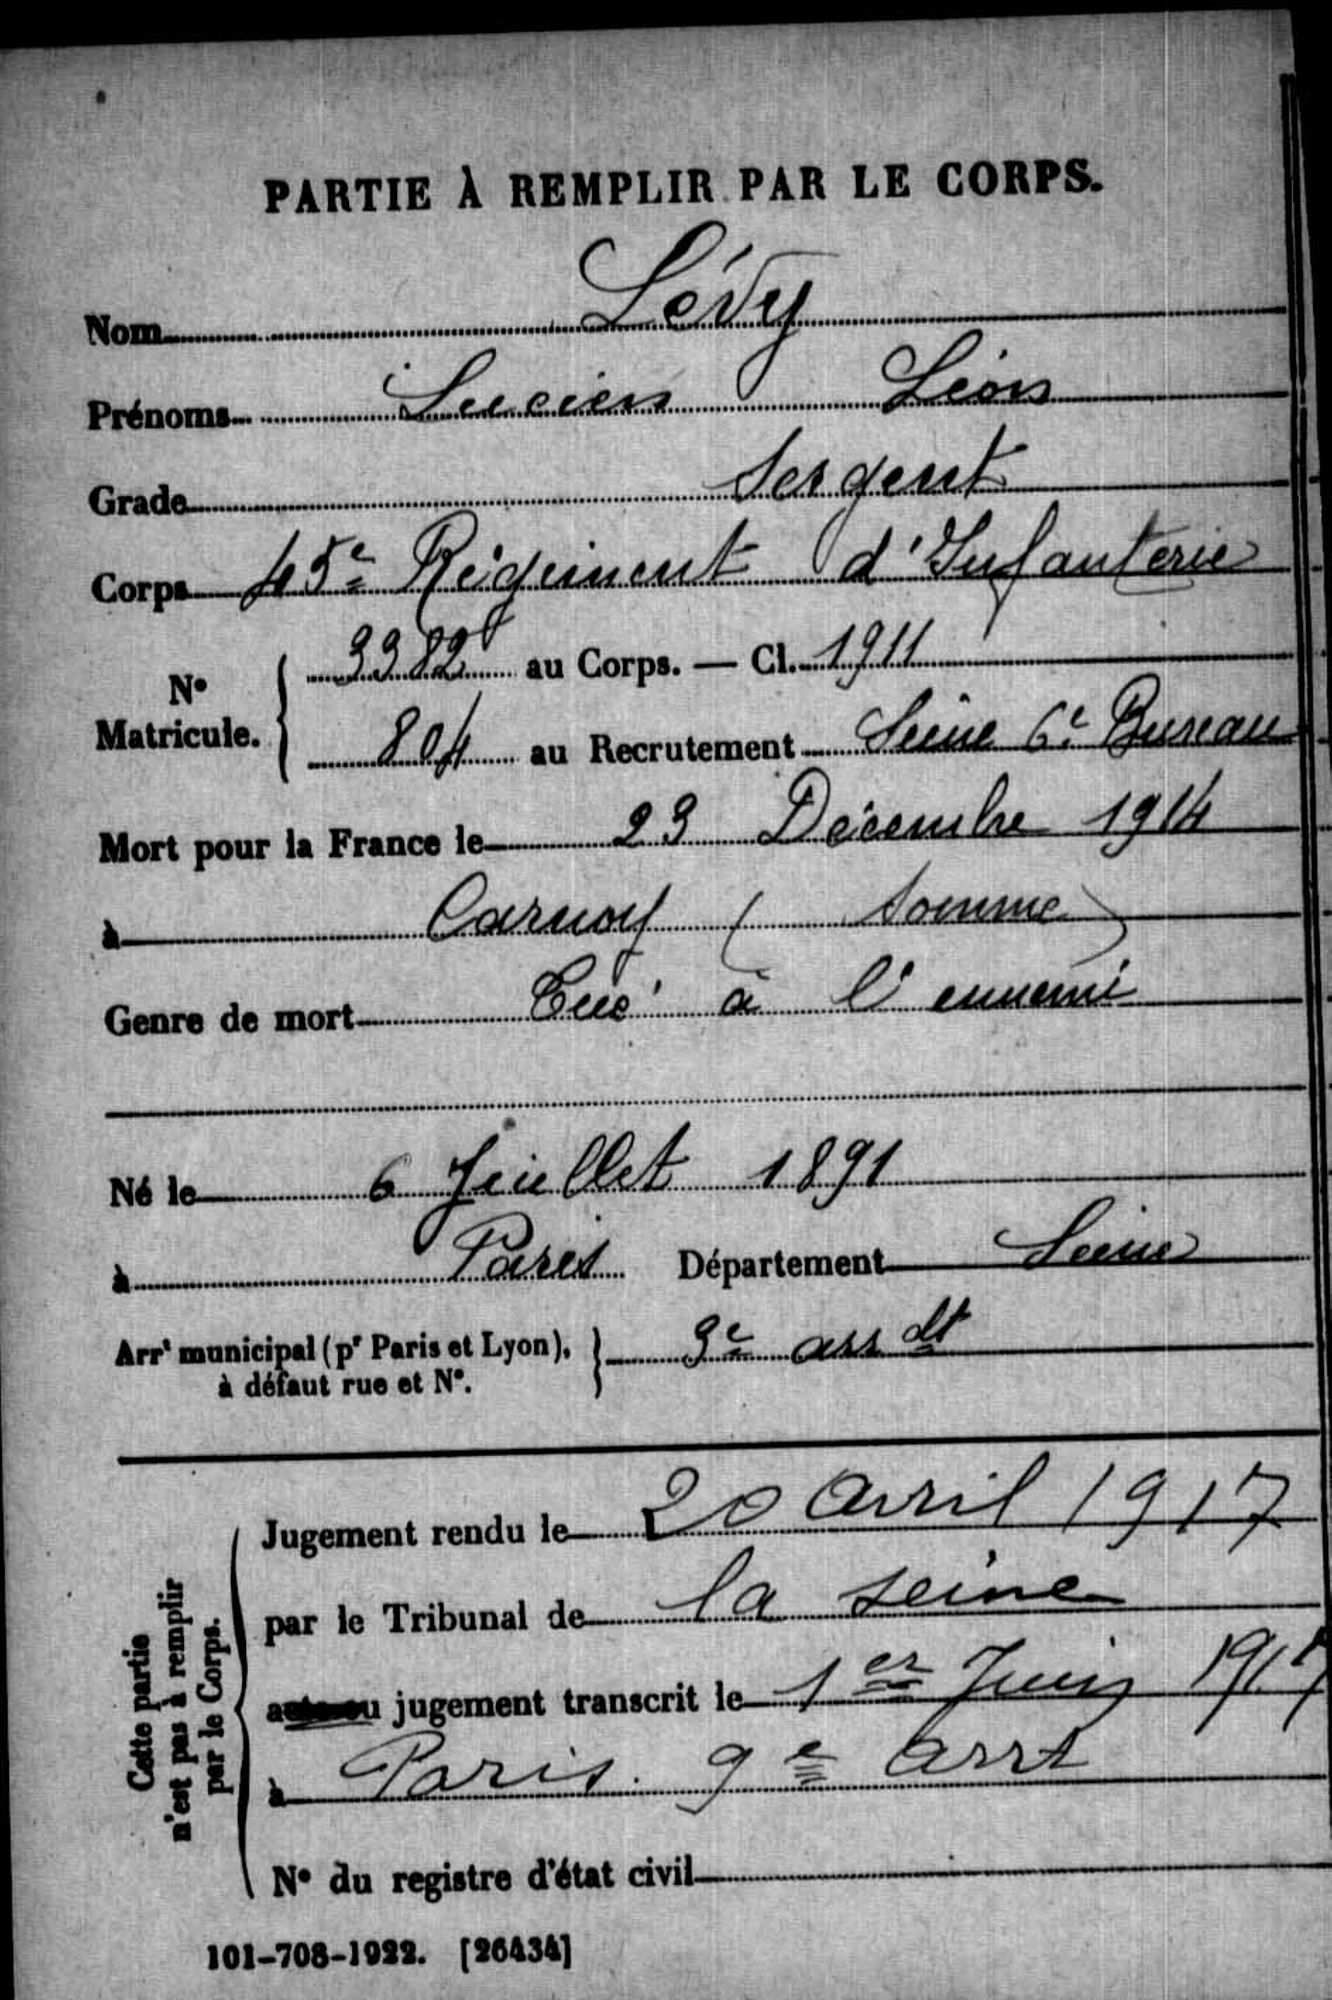 PARTIE À REMPLIR PAR LE CORPS.
Nom Lévy
Prénoms Lucien Léon
Grade Sergent
Corps 45e Régiment d'Infanterie
N° Matricule. 3382 au Corps. — Cl. 1911
804 au Recrutement Seine 6e Bureau
Mort pour la France le 23 Décembre 1914
à Carnoy (Somme)
Genre de mort Tué à l'ennemi
Né le 6 Juillet 1891
à Paris Département Seine
Arrt municipal (pr Paris et Lyon), 3e arrdt
à défaut rue et N°.
Cette partie
n'est pas à remplir
par le Corps.
Jugement rendu le 20 avril 1917
par le Tribunal de la seine
acte ou jugement transcrit le 1er Juin 1917
à Paris. 9e arrt
N° du registre d'état civil
101-708-1922. [26434]